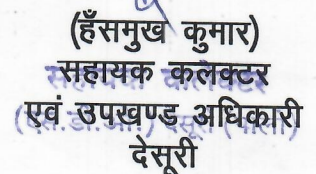 (हँसमुख कुमार)
सहायक कलेक्टर
एवं उपखण्ड अधिकारी
देसूरी